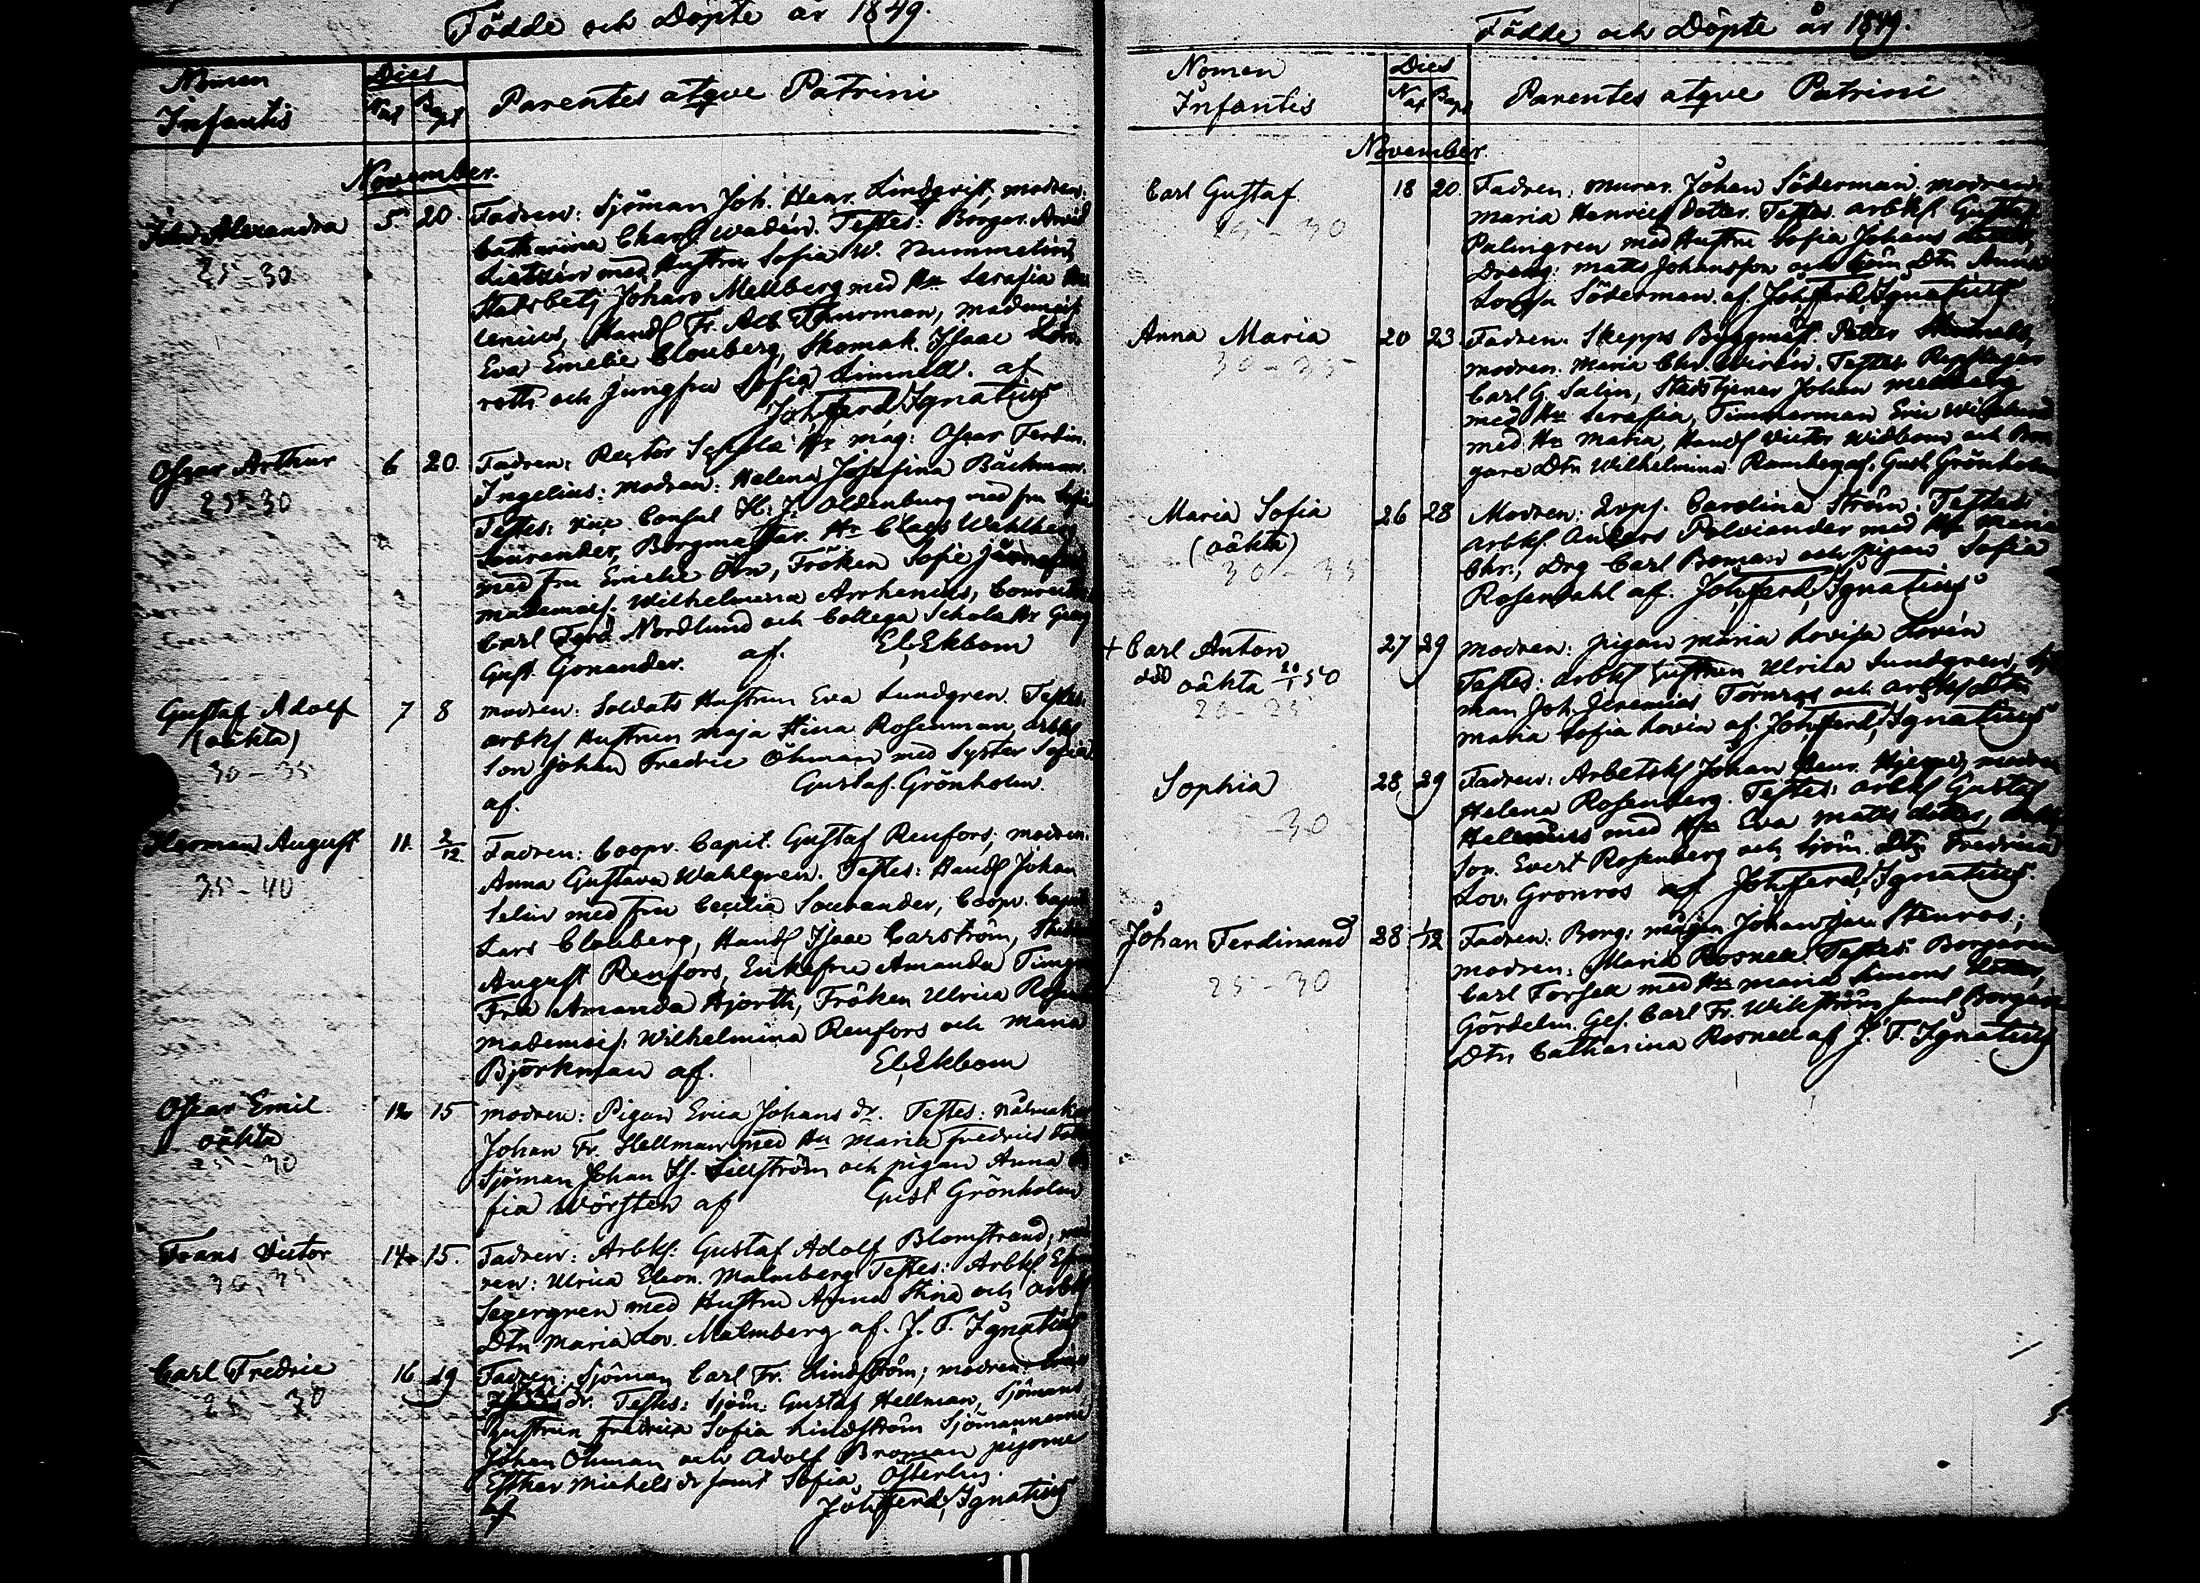 Födde och Döpte år 1849.
Nomen Infantis
Dies
Nat Bapt
Parentes atque Patrini
November.
Alexandra 5. 20. Fadren: Sjöman Joh. Henr. Lindqvist, modren:
25-30
Catharina Charl. Wadén. Testes: Borgar.
med Hustru Sofia W. Nummelin,
Stadsbetj Johan Mellberg med Hu Serafia
lenius, Handl Fr. Alb Thurman, mademois
Eva Emelie Clouberg, Skomak. Isaac
roth och Jungfru Sofia Limnell. af
Joh Ferd Ignatius
Oscar Arthur 6 20. Fadren: Rector Schola Hr mag: Oscar Ferdin.
25-30
Ingelius: modren: Helena Josefina Bäckman.
Testes: vice Consul H. J. Oldenburg med fru Sofie
Borgmästar. Hr Claes Wahlberg
med fru Emelie Fröken Sofie
mademois. Wilhelmina Arrhenius,
Carl Ferd Nordlund och Collega Schola Hr Georg
Gust. Gonander. af. El. Ekbom
Gustaf Adolf 7 8 modren: Soldats Hustrun Eva Lundgren. Testes:
(oäkta)
30-35
arbks Hustrun Maja Stina Rosenman, arbks
son Johan Fredric Öhman med Syster Sofia
af. Gustaf Grönholm.
Herman August 11. 2/12 Fadren: Coopv. Capit. Gustaf Renfors, modren:
35-40
Anna Gustava Wahlgren. Testes: Handl Johan
Selin med fru Cecilia Sourander, Coopv. Capit
Lars Clouberg, Handl Isaac Carström,
August Renfors, Enkefru Amanda
Fru Amanda Hjorth, Fröken Ulrica
mademois: Wilhelmina Renfors och Maria
Björkman af. El. Ekbom
Oscar Emil. 12 15 modren: Pigan Erica Johans dr. Testes: nålmakar
oäkta
25-30
Johan Fr. Hellman med Hu Maria Fredrics
Sjöman Johan Is. Lillström och pigan Anna
fia Wörsten af Gust Grönholm
Frans Victor 14 15. Fadren: Arbks: Gustaf Adolf Blomstrand,
30-35
ren: Ulrica Eleon. Malmberg Testes: Arbks.
Segergren med Hustru Anna Stina och arbks
Dtn Maria Lov. Malmberg af. J. F. Ignatius
Carl Fredric 16 19 Fadren: Sjöman Carl Fr. Lindström; modren:
25-30
dr. Testes: Sjöm: Gustaf Hellman, Sjömans
hustrun Fredrica Sofia Lindström Sjömannerne
Johan Öhman och Adolf Broman pigorne
Esther Michels dr samt Sofia Österlin.
af Joh Ferd Ignatius
Födde och Döpte år 1849.
Nomen Infantis
Dies
Nat Bapt
Parentes atque Patrini
November.
Carl Gustaf 18 20. Fadren: murar. Johan Söderman. modren:
25-30
Maria Henrics dotter. Testes. arbks Gustaf
Palmgren med Hustru Sofia Johans
Dräng: Matts Johansson och Sjöm. Dtn Anna
Lovisa Söderman. af. Joh Ferd Ignatius
Anna Maria 20 23. Fadren. Skepps Byggmäst. Petter
30-35
modren. Maria Chr. Wirén. Testes Repslagar
Carl G. Salin, Stadstjenar Johan Mellberg
med Hu Serafia, Timmerman Eric
med Hu Maria, Handl Victor Widbom och Bor
gare Dtn Wilhelmina af. Gust Grönholm
Maria Sofia 26 28 Modren: Carolina Ström. Testes
(oäkta)
30-35
arbks Anders Polviander med Hu Maria
Chr., Drg Carl Boman och pigan Sofia
Rosendahl af. Joh Ferd Ignatius
+ Carl Anton 27 29 modren: pigan Maria Lovisa Lovén
död oäkta 20/1 50
20-25
Testes: arbks Hustrun Ulrica Lundgren,
man Joh. Jeremias Törnros och arbks Dtn
Maria Sofia Lovén af. Joh Ferd Ignatius
Sophia 28 29 Fadren: Arbetsk Johan Henr. modren
-30
Helena Rosenberg. Testes: arbks Gustaf
Helenius med Hu Eva Matts dotter,
son Evert Rosenberg och Sjöm. Dtn Fredrica
Lov. Grönros af Joh Ferd Ignatius.
Johan Ferdinand 28 1/12 Fadren: Borg: Johan Stenros;
25-30
modren: Maria Rosnell. Testes: Borgaren
Carl Forsell med Hu Maria Simons dotter,
Gördelm. Ges. Carl Fr. Wikström samt Borgar
Dtn Catharina Rosnell af J. F. Ignatius